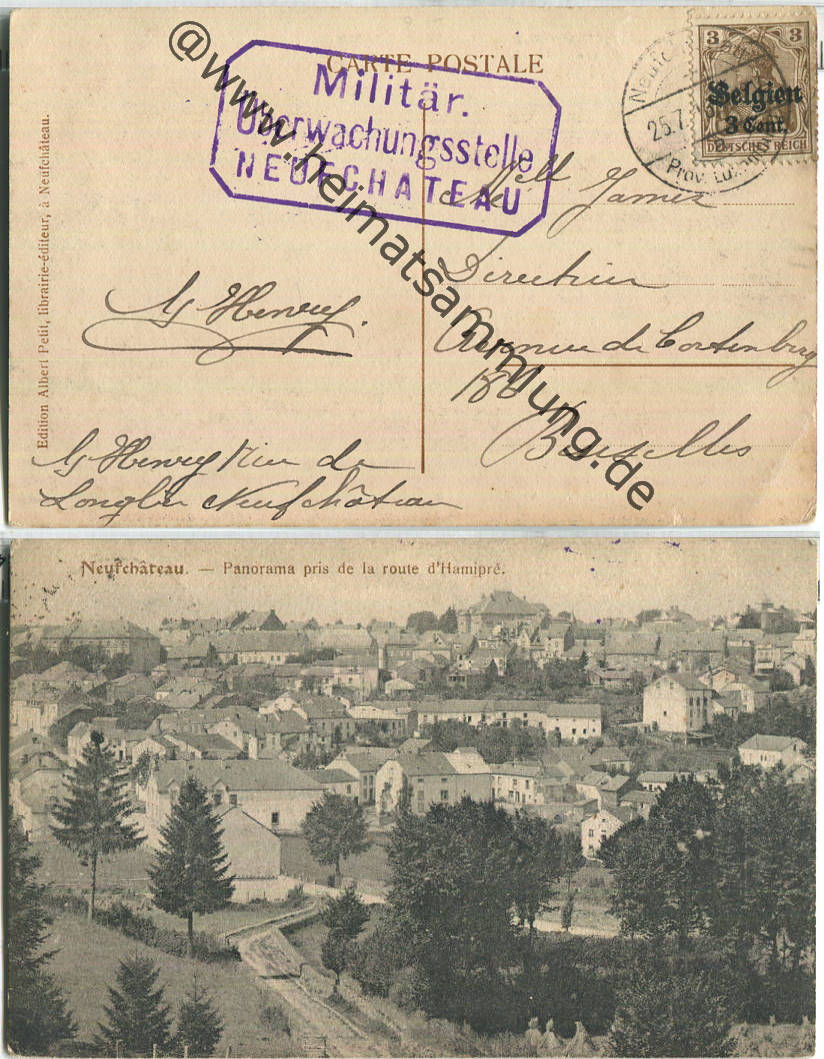 CARTE POSTALE
Militär.
Überwachungsstelle
NEUFCHATEAU
3 3
Belgien
3 Cent.
DEUTSCHES REICH
25.7.
Prov. Lux
@www.heimatsammlung.de
Edition Albert Petit, librairie-éditeur, à Neufchâteau.
Henry.
Melle James
Avenue de Cortenberg
Bruxelles
Henry Rue de
Longlier Neufchâteau
Neufchâteau. — Panorama pris de la route d'Hamipré.